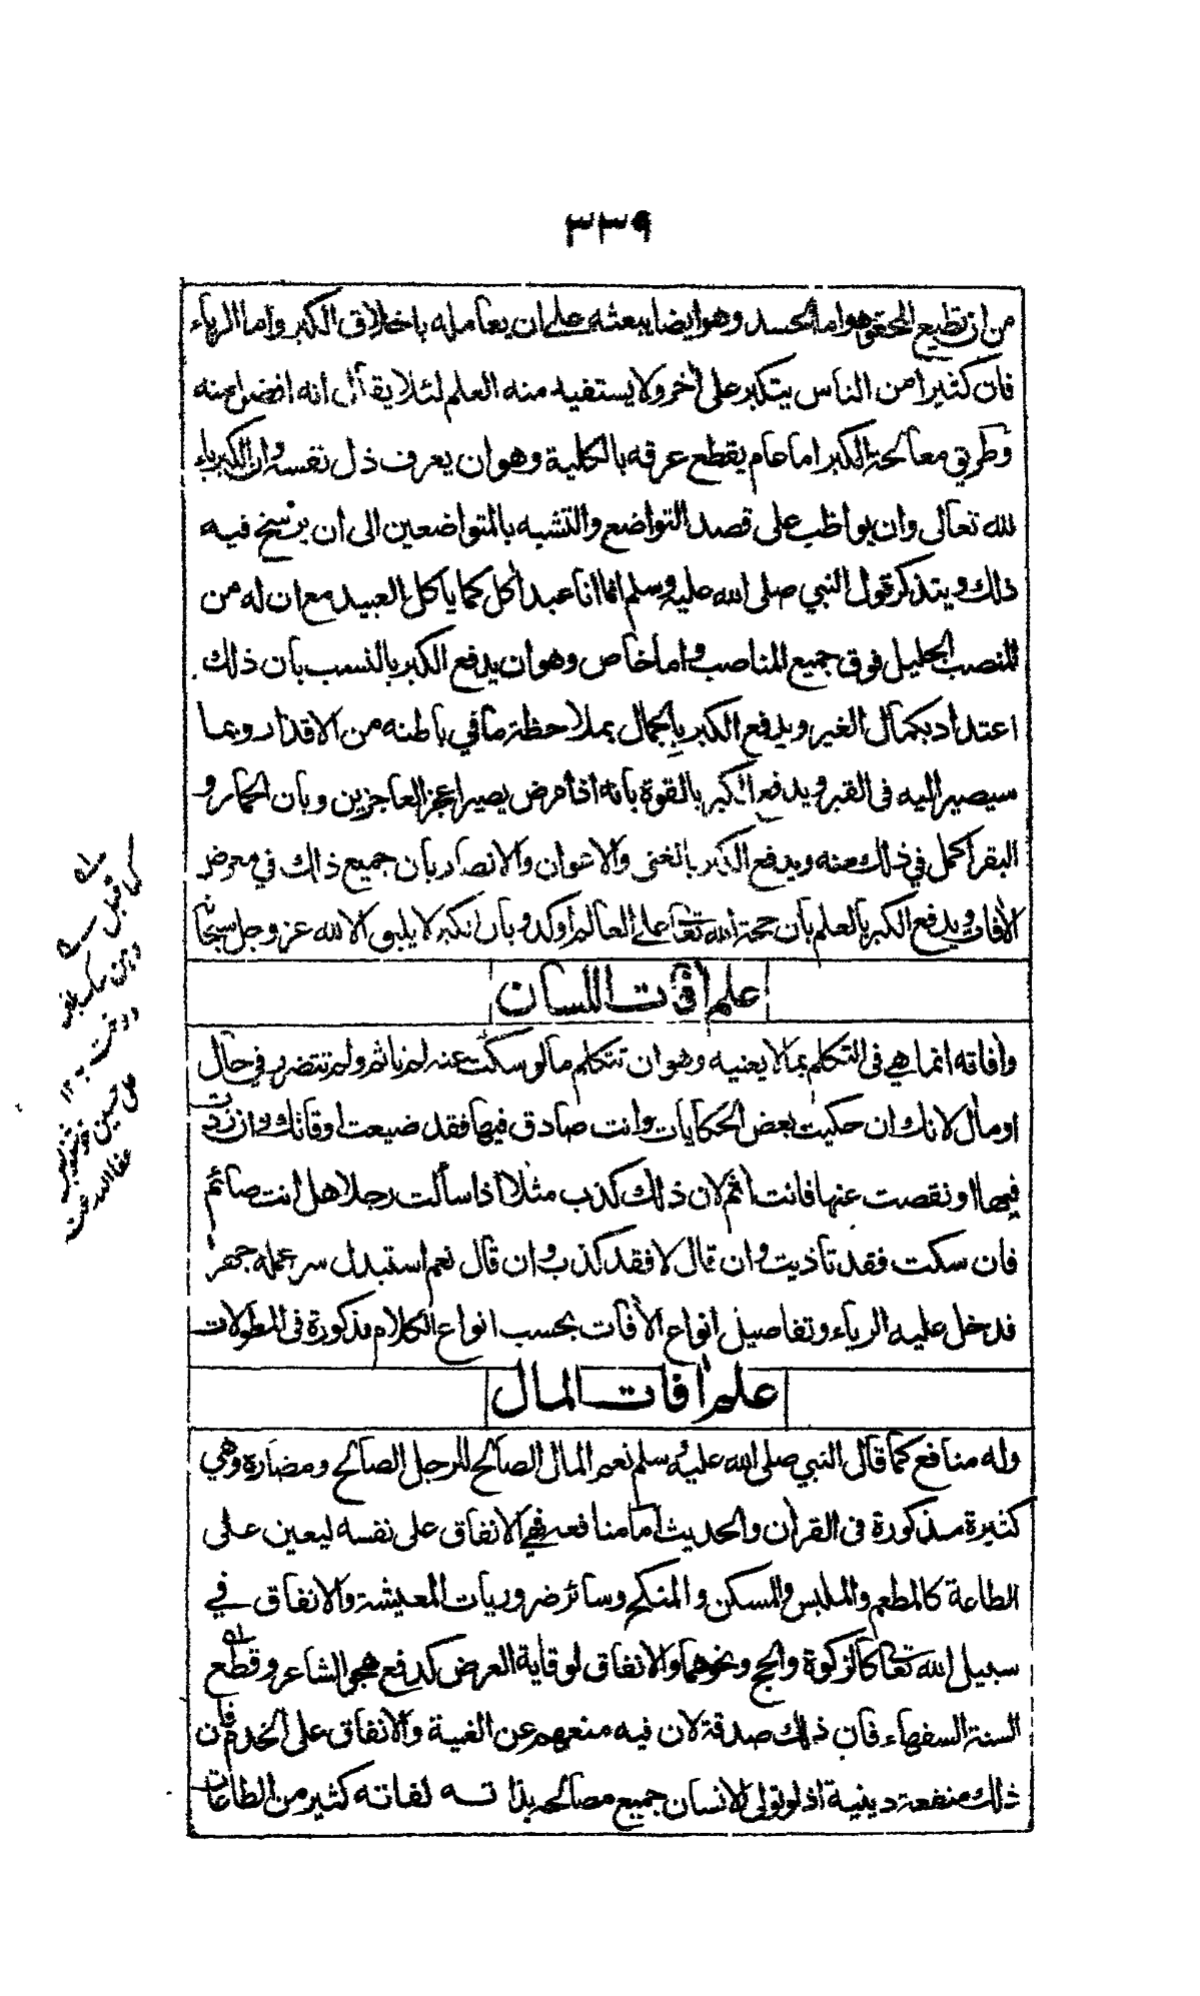 ٣٣٩
من ان تطيع الحقد هو اما الحسد وهو ايضا يبعثه على ان يعامله باخلاق الكبر واما الرياء
فان كثيرا من الناس يتكبر على آخر ولا يستفيد منه العلم لئلا يقال انه افضل منه
وطريق معالجة الكبر اما عام يقطع عرقه بالكلية وهو ان يعرف ذل نفسه وان الكبرياء
لله تعالى وان يواظب على قصد التواضع والتشبه بالمتواضعين الى ان يرسخ فيه
ذلك ويتذكر قول النبي صلى الله عليه وسلم انما انا عبد آكل كما ياكل العبيد مع ان له من
المنصب الجليل فوق جميع المناصب واما خاص وهو ان يدفع الكبر بالنسب بان ذلك
اعتداد بكمال الغير ويدفع الكبر بالجمال بملاحظة ما في باطنه من الاقذار وبما
سيصير اليه فى القبر ويدفع الكبر بالقوة بانه اذا مرض يصير اعجز العاجزين وبان الحمار و
البقر اكمل في ذلك منه ويدفع الكبر بالغنى والاعوان والانصار بان جميع ذلك في معرض
الآفات ويدفع الكبر بالعلم بان حجة الله تعا على العالم اوكد وبان الكبر لا يليق الا لله عز وجل سبحا
علم آفات اللسان
وآفاته انما هي فى التكلم بما لا يعنيه وهو ان تتكلم ما لو سكت عنه لم تاثم ولم تتضرر في حال
او مال لانك ان حكيت بعض الحكايات وانت صادق فيها فقد ضيعت اوقاتك وان زدت
فيها او نقصت عنها فانت آثم لان ذلك كذب مثلا اذا سألت رجلا هل انت صائم
فان سكت فقد تأذيت وان قال لا فقد كذب وان قال نعم استبدل سر عمله جهر
فدخل عليه الرياء وتفاصيل انواع الآفات بحسب انواع الكلام مذكورة فى المطولات
علم آفات المال
وله منافع كما قال النبي صلى الله عليه وسلم نعم المال الصالح للرجل الصالح ومضاره وهي
كثيرة مذكورة فى القرآن والحديث اما منافعه فهي الانفاق على نفسه ليعين على
الطاعة كالمطعم والملبس والمسكن والمنكح وسائر ضروريات المعيشة والانفاق في
سبيل الله تعالى كالزكوة والحج ونحوهما والانفاق لوقاية العرض كدفع هجو الشاعر وقطع
السنة السفهاء فان ذلك صدقة لان فيه منعهم عن الغيبة والانفاق على الخدم فان
ذلك منفعة دينية اذ لو تولى الانسان جميع مصالحه بذاته لفاته كثير من الطاعات